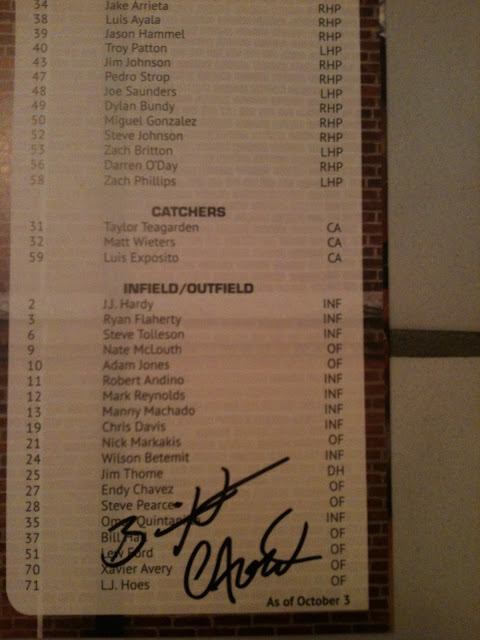 34 Jake Arrieta RHP
38 Luis Ayala RHP
39 Jason Hammel RHP
40 Troy Patton LHP
43 Jim Johnson RHP
47 Pedro Strop RHP
48 Joe Saunders LHP
49 Dylan Bundy RHP
50 Miguel Gonzalez RHP
52 Steve Johnson RHP
53 Zach Britton LHP
56 Darren O'Day RHP
58 Zach Phillips LHP
CATCHERS
31 Taylor Teagarden CA
32 Matt Wieters CA
59 Luis Exposito CA
INFIELD/OUTFIELD
2 J.J. Hardy INF
3 Ryan Flaherty INF
6 Steve Tolleson INF
9 Nate McLouth OF
10 Adam Jones OF
11 Robert Andino INF
12 Mark Reynolds INF
13 Manny Machado INF
19 Chris Davis INF
21 Nick Markakis OF
24 Wilson Betemit INF
25 Jim Thome DH
27 Endy Chavez OF
28 Steve Pearce OF
35 Omar Quintan INF
37 Bill Ha OF
51 Lew Ford OF
70 Xavier Avery OF
71 L.J. Hoes OF
As of October 3